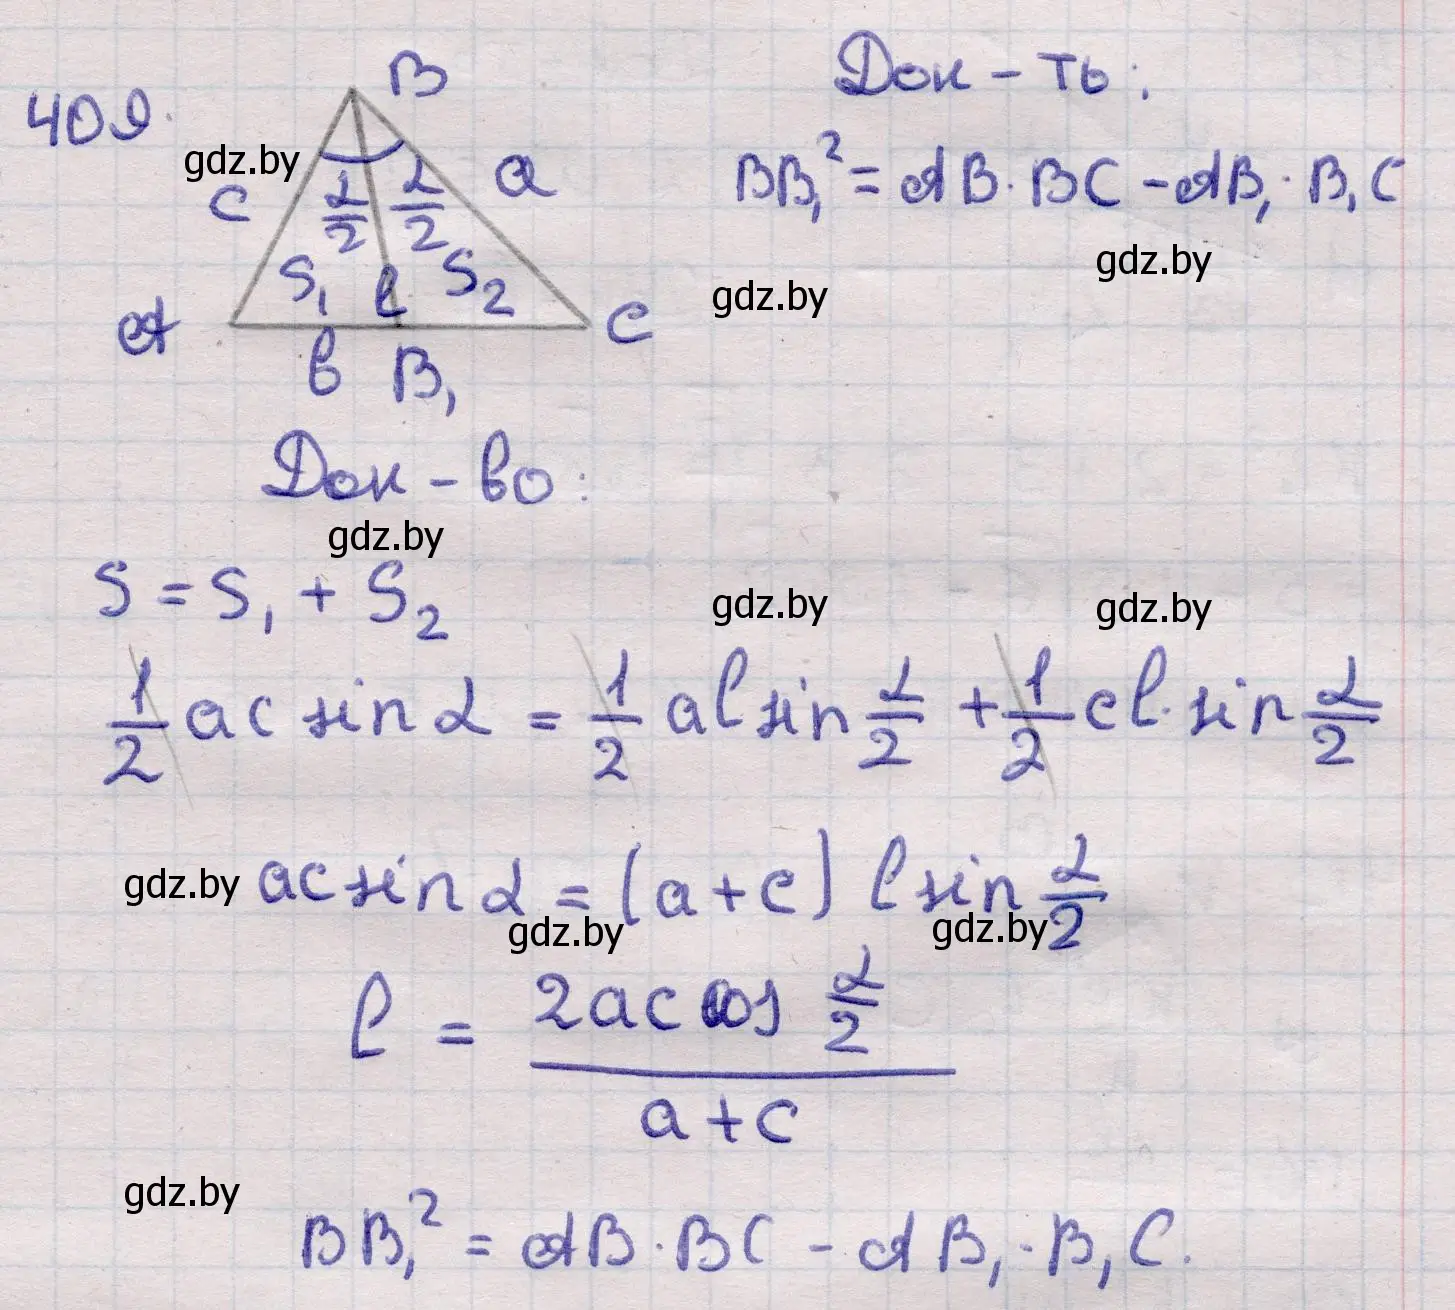 409.
B
Док-ть:
gdz.by
c
α/2
α/2
a
BB₁² = AB · BC - AB₁ · B₁C
gdz.by
S₁
l
S₂
gdz.by
A
C
b
B₁
Док-во:
gdz.by
S = S₁ + S₂
gdz.by
gdz.by
1/2 ac sin α = 1/2 al sin α/2 + 1/2 cl · sin α/2
gdz.by
ac sin α = (a+c) l sin α/2
gdz.by
gdz.by
l = 2ac cos α/2 / a+c
gdz.by
BB₁² = AB · BC - AB₁ · B₁C.